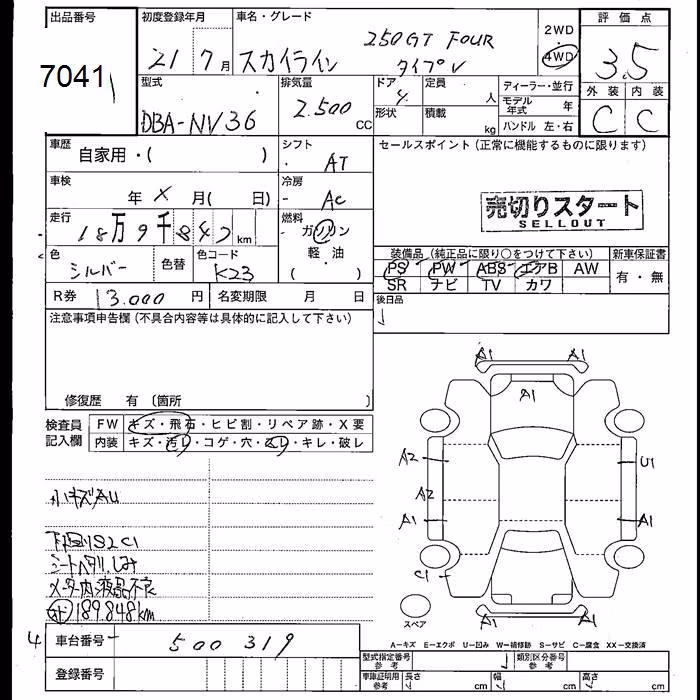 出品番号
7041
初度登録年月
21 7月
車名・グレード
スカイライン
250GT FOUR
タイプV
2WD
4WD
評価点
3.5
外装 内装
C C
型式
DBA-NV36
排気量
2.500 CC
ドア 4
定員 人
形状
積載 kg
ディーラー・並行
モデル年式 年
ハンドル 左・右
車歴 自家用・( )
シフト
AT
セールスポイント(正常に機能するものに限ります)
車検
年 X 月( 日)
冷房
AC
売切りスタート
SELLOUT
走行
18万9千847km
燃料
ガソリン
軽・油
( )
色
シルバー
色替
色コード
K23
装備品(純正品に限り○をつけて下さい)
PS PW ABS エアB AW
SR ナビ TV カワ
新車保証書
有・無
R券 13.000円
名変期限 月 日
後日品
注意事項申告欄(不具合内容等は具体的に記入して下さい)
修復歴 有〔箇所 〕
検査員記入欄
FW キズ・飛石・ヒビ割・リペア跡・X要
内装 キズ・汚レ・コゲ・穴・スレ・キレ・破レ
小キズAU
下廻りS2C1
シートヘタリ.しみ
メーター内液晶不良
189.848km
A1 A1
A1
A2 U1
A2
A1 A1
C1
A1 A1
スペア
A-キズ E-エクボ U-凹み W-補修跡 S-サビ C-腐食 XX-交換済
4
車台番号 500319
登録番号
型式指定番号 参考
類別区分番号 参考
車庫証明用 参考
長さ cm
幅 cm
高さ cm